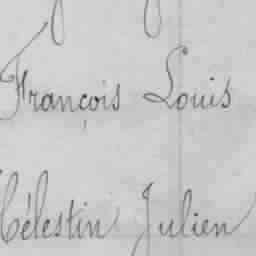 François Louis
Célestin Julien